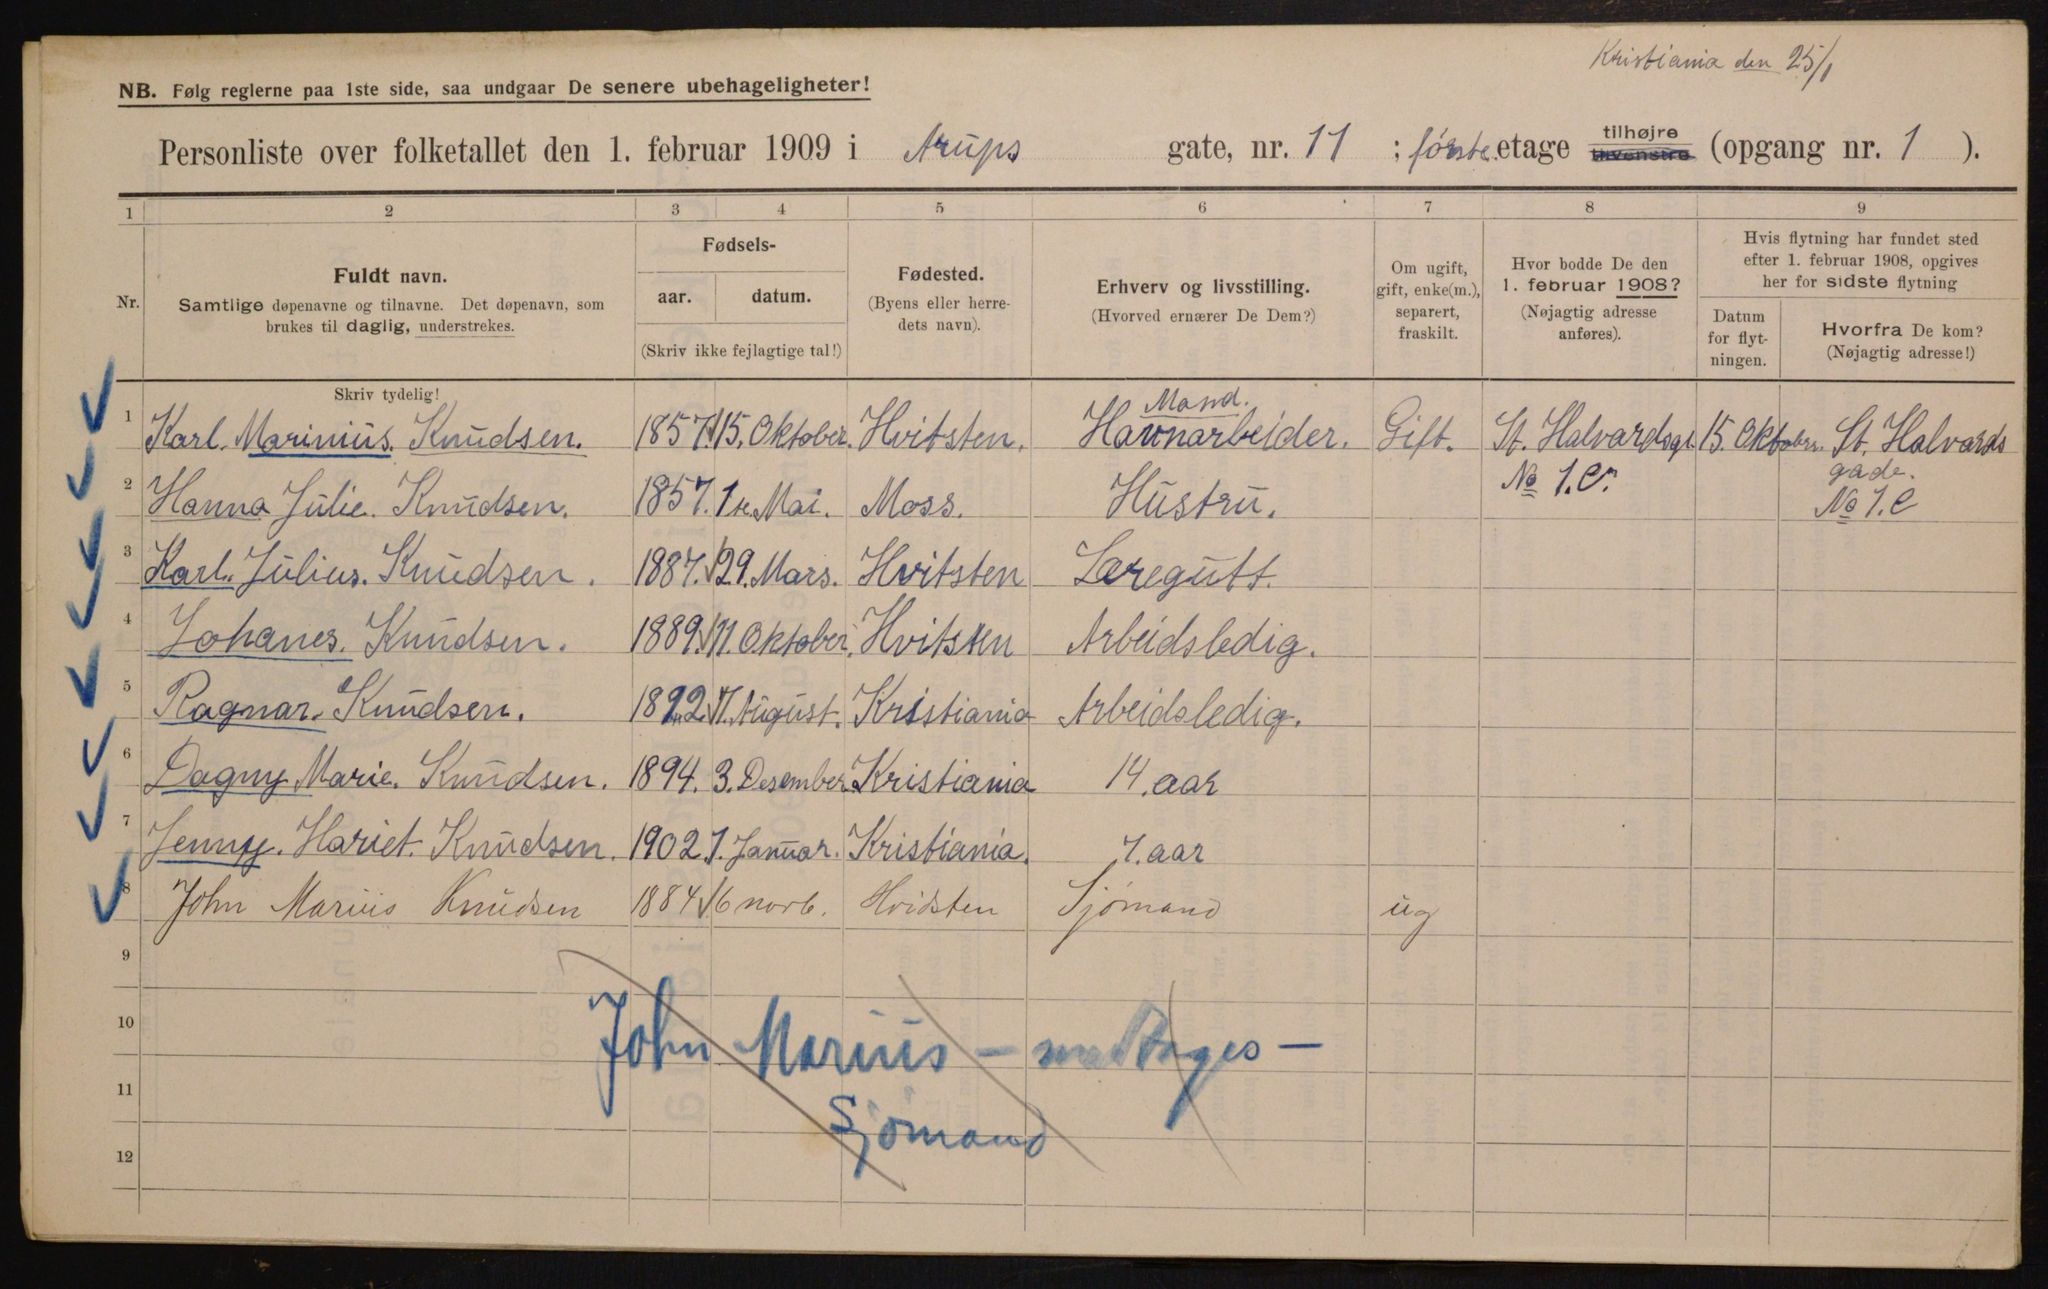 Kristiania den 25/1
NB. Følg reglerne paa 1ste side, saa undgaar De senere ubehageligheter!
Personliste over folketallet den 1. februar 1909 i Arups gate, nr. 11 ; første etage tilhøjre tilvenstre (opgang nr. 1 ).
1 2 3 4 5 6 7 8 9
Nr.
Fuldt navn.
Samtlige døpenavne og tilnavne. Det døpenavn, som
brukes til daglig, understrekes.
Fødsels-
aar. datum.
(Skriv ikke fejlagtige tal!)
Fødested.
(Byens eller herre-
dets navn).
Erhverv og livsstilling.
(Hvorved ernærer De Dem?)
Om ugift,
gift, enke(m.),
separert,
fraskilt.
Hvor bodde De den
1. februar 1908?
(Nøjagtig adresse
anføres).
Hvis flytning har fundet sted
efter 1. februar 1908, opgives
her for sidste flytning
Datum
for flyt-
ningen.
Hvorfra De kom?
(Nøjagtig adresse!)
Skriv tydelig!
Mand.
1 Karl. Marinius. Knudsen. 1857. 15. Oktober. Hvitsten. Havnarbeider. Gift. St. Halvardsgt. 15. Oktober. St. Halvards
No 1.C. gade.
2 Hanna Julie. Knudsen. 1857. 1te. Mai. Moss. Hustru. No 1.C
3 Karl. Julius. Knudsen. 1887. 29. Mars. Hvitsten Læregutt.
4 Johanes. Knudsen. 1889. 11. Oktober. Hvitsten Arbeidsledig.
5 Ragnar. Knudsen. 1892. 7. August. Kristiania Arbeidsledig.
6 Dagny Marie. Knudsen. 1894. 3. Desember. Kristiania 14. aar
7 Jenny. Hariet. Knudsen. 1902. 7. Januar. Kristiania. 7. aar
8 John Marius Knudsen 1884 6 novb. Hvidsten Sjømand ug
9
10
John Marius —
11
Sjømand
12